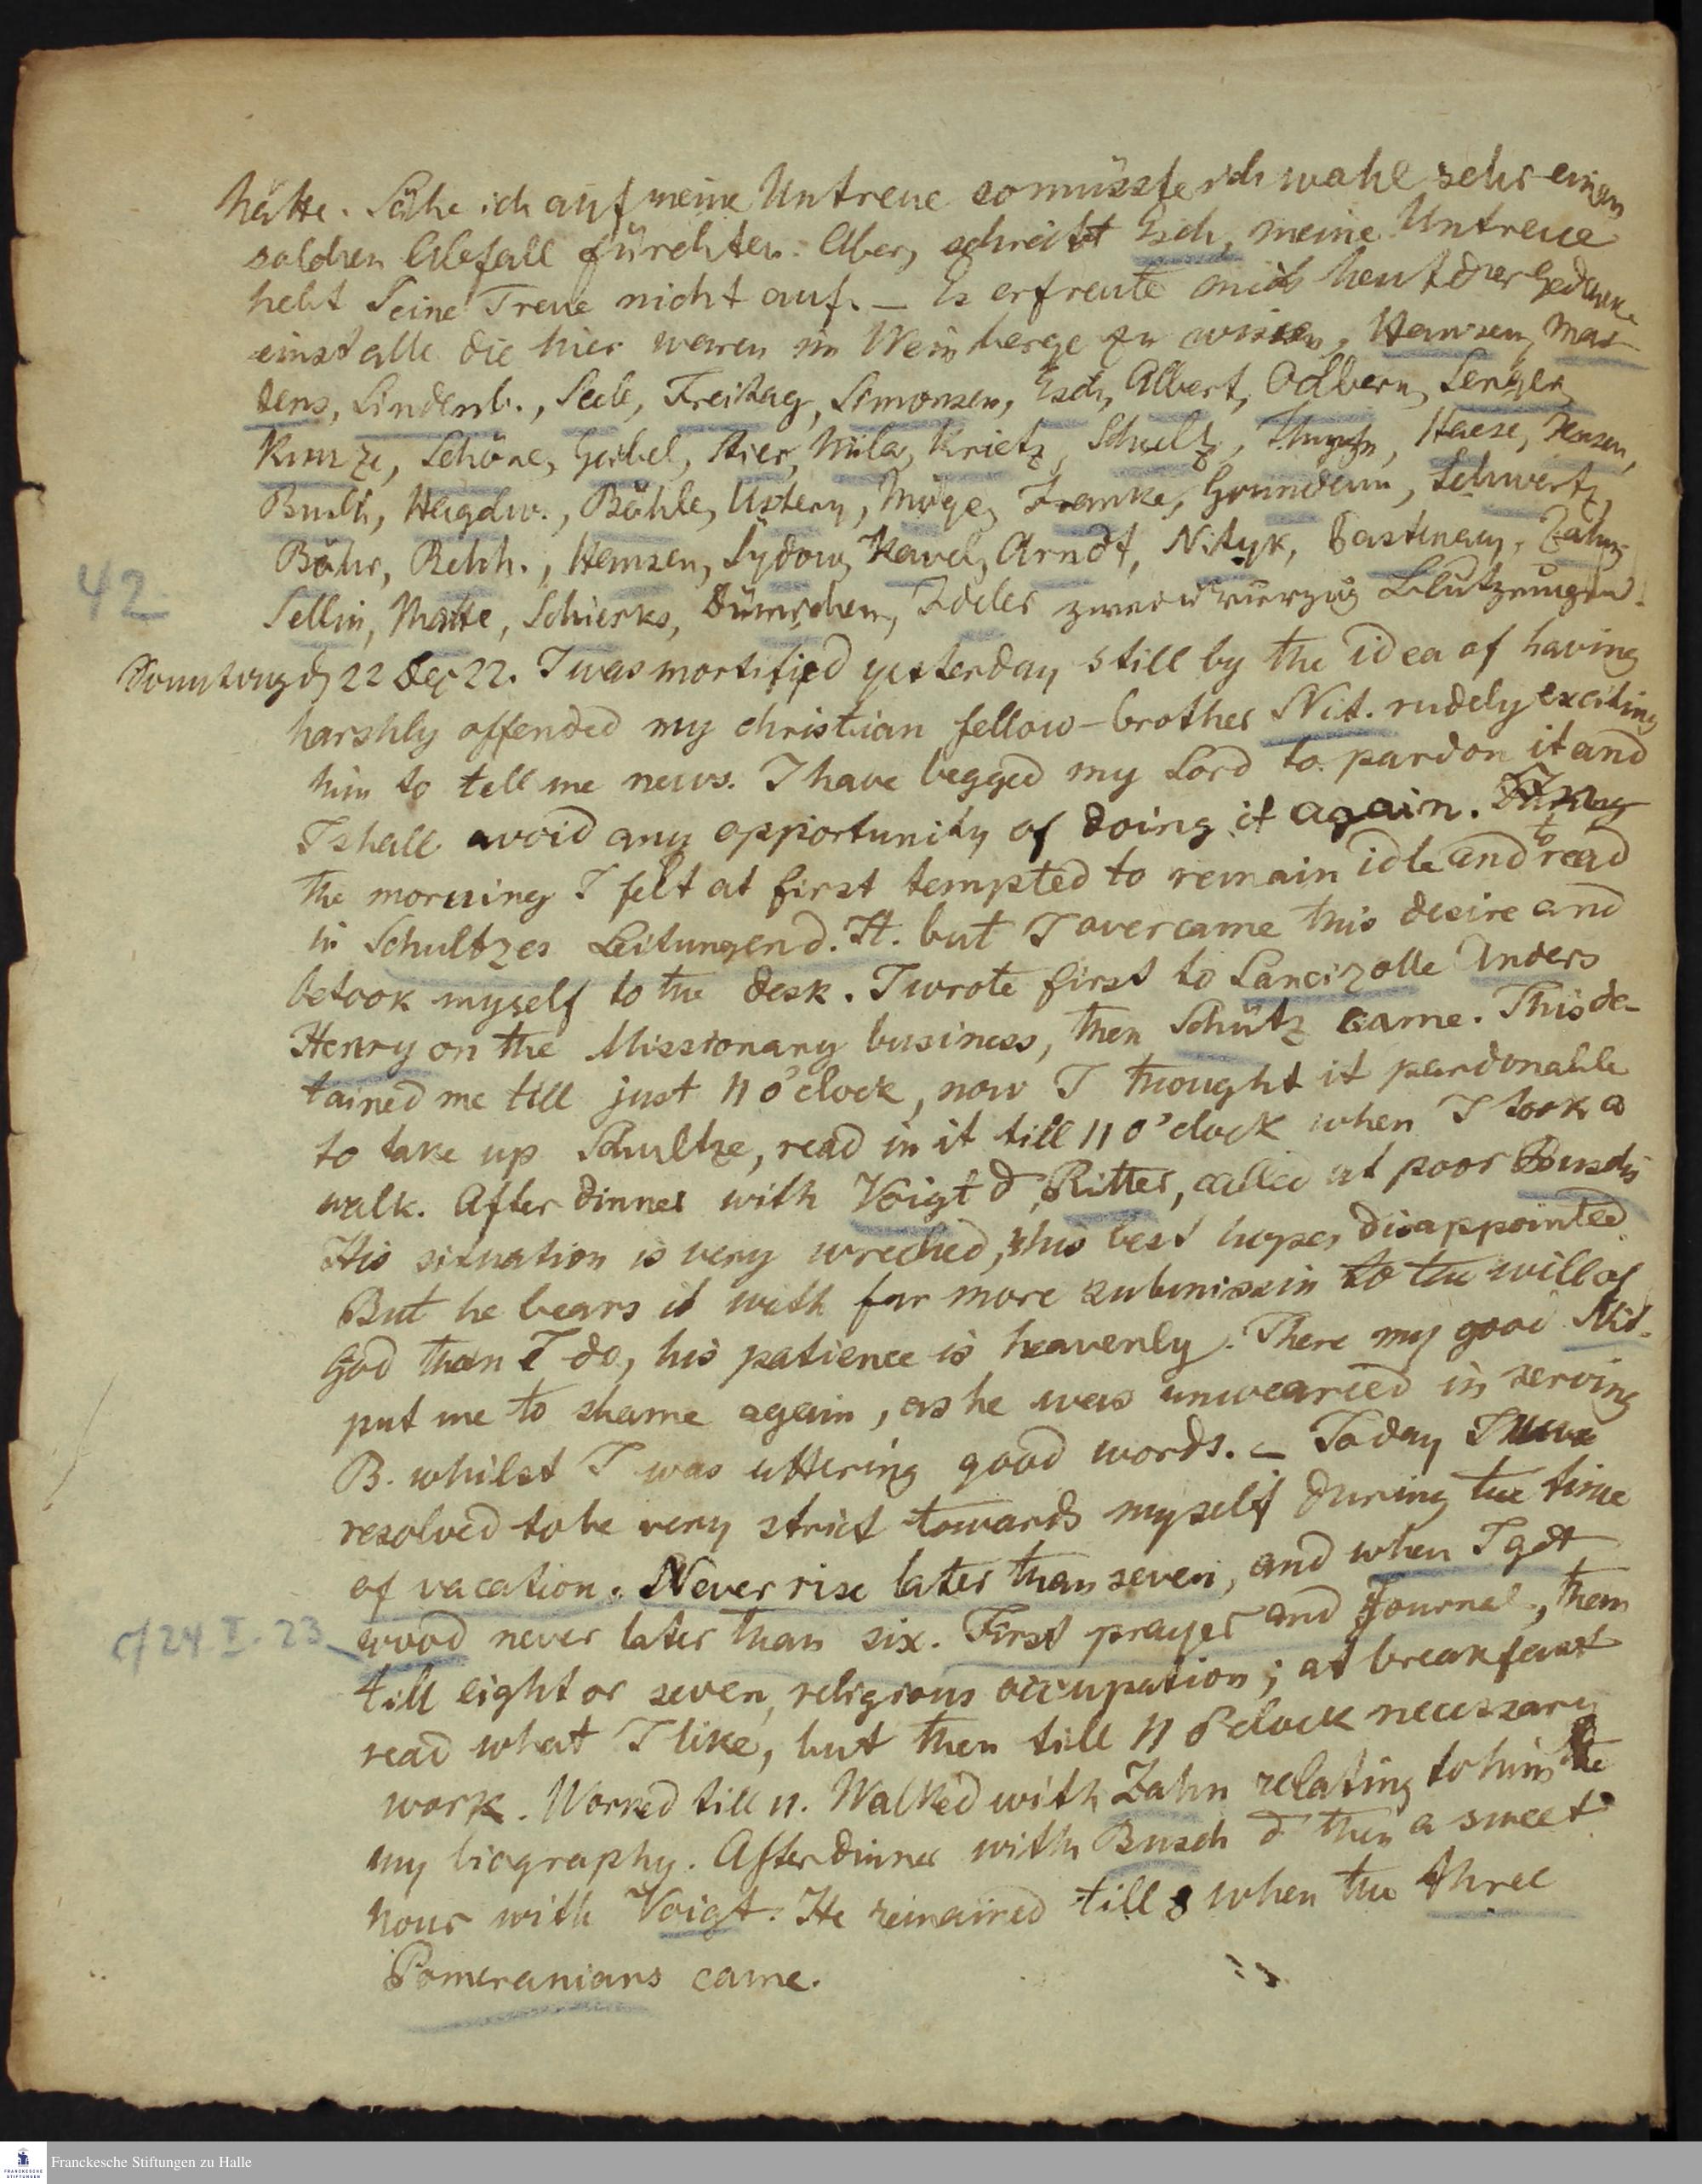 hätte. Sähe ich auf meine Untreue so müsste ich wahl sehr einen
solchen Abfall fürchten. Aber, schreibt Esch, meine Untreue
hebt Seine Treue nicht auf. – Es erfreute mich heut der Gedanke
einst alle die hier waren im Weinberge zu wissen, Hansen, Mar-
tens, Lindenb., Seele, Freitag, Simonsen, Esch, Albert, Olbern, Senger,
Kunze, Schöne, Geibel, Stier, Mila, Krietz, Schultz, Haese, Jensen,
Busch, Hagdw., Böhle, Ustery, Möge, Franke, Grundem, Schwertz,
Bähr, Rehh., Hansen, Sydow, Kavel, Arndt, Nityk, Pastenacy, Zahn,
Sellin, Matte, Schierks, Dümichen, zwei u vierzig Blutzeugen!
42
Sonntag d 22 Dec 22. I was mortified yesterday still by the idea of having
harshly offended my christian fellow-brother Nit. rudely exciting
him to tell me news. I have begged my Lord to pardon it and
I shall avoid any opportunity of doing it again. During
the morning I felt at first tempted to remain idle and to read
in Schultzes Leitungen d. H. but I overcame this desire and
betook myself to the desk. I wrote first to Lancizolle Anders
Henry on the Missionary business, then Schütz came. This de-
tained me till just 11 o'clock, now I thought it pardonable
to take up Schultze, read in it till 11 o'clock when I took a
walk. After dinner with Voigt d Ritter, called at poor Buschs
His situation is very wreched, his best hopes disappointed.
But he bears it with far more submissin to the will of
God than I do, his patience is heavenly. There my good Nit.
put me to shame again, as he was unwearied in serving
B. whilst I was uttering good words. – Today I have
resolved to be very strict towards myself during the time
of vacation. Never rise later than seven, and when I get
cf 24. I. 23
wood never later than six. First prayer and Journal, then
till eight or seven, religious occupation; at breakfast
read what I like, but then till 11 o'clock necessary
work. Worked till 11. Walked with Zahn relating to him the
my biography. After dinner with Busch d then a sweet
hour with Voigt. He remained till 8 when the three
Pomeranians came.
Franckesche Stiftungen zu Halle